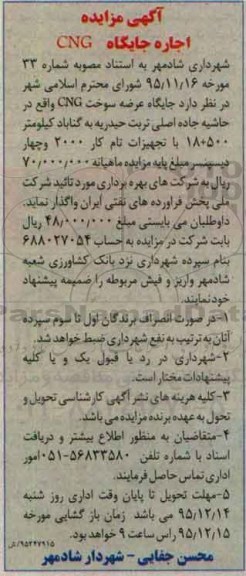 آگهی مزایده
اجاره جایگاه CNG
شهرداری شادمهر به استناد مصوبه شماره ۳۳
مورخه ۹۵/۱۱/۱۶ شورای محترم اسلامی شهر
در نظر دارد جایگاه عرضه سوخت CNG واقع در
حاشیه جاده اصلی تربت حیدریه به گناباد کیلومتر
۵۰۰+۱۸ با تجهیزات تام کار ۲۰۰۰ وچهار
دیسپنسر مبلغ پایه مزایده ماهیانه ۷۰/۰۰۰/۰۰۰
ریال به شرکت های بهره برداری مورد تائید شرکت
ملی پخش فراورده های نفتی ایران واگذار نماید.
داوطلبان می بایستی مبلغ ۴۸/۰۰۰/۰۰۰ ریال
بابت شرکت در مزایده به حساب ۶۸۸۰۲۷۰۵۴
بنام سپرده شهرداری نزد بانک کشاورزی شعبه
شادمهر واریز و فیش مربوطه را ضمیمه پیشنهاد
خود نمایند.
۱-در صورت انصراف برندگان اول تا سوم سپرده
آنان به ترتیب به نفع شهرداری ضبط خواهد شد.
۲-شهرداری در رد یا قبول یک و یا کلیه
پیشنهادات مختار است.
۳-کلیه هزینه های نشر آگهی کارشناسی تحویل و
تحول به عهده برنده مزایده می باشد.
۴-متقاضیان به منظور اطلاع بیشتر و دریافت
اسناد با شماره تلفن ۵۶۸۳۳۵۸۰-۰۵۱ امور
اداری تماس حاصل فرمایند.
۵-مهلت تحویل تا پایان وقت اداری روز شنبه
۹۵/۱۲/۱۴ می باشد زمان باز گشایی مورخه
۹۵/۱۲/۱۵ راس ساعت ۹ خواهد بود.
۹۵۲۴۷۹۱۵/ش
محسن جفایی - شهردار شادمهر